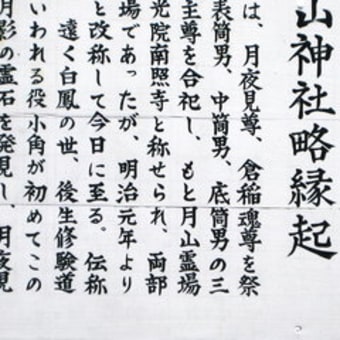 山神社略縁起
は、月夜見尊、倉稲魂尊を祭
表筒男、中筒男、底筒男の三
主尊を合祀し、もと月山霊場
光院南照寺と称せられ、両部
場であったが、明治元年より
と改称して今日に至る。伝称
遠く白鳳の世、後生修験道
いわれる役小角が初めてこの
月影の霊石を発見し、月夜見